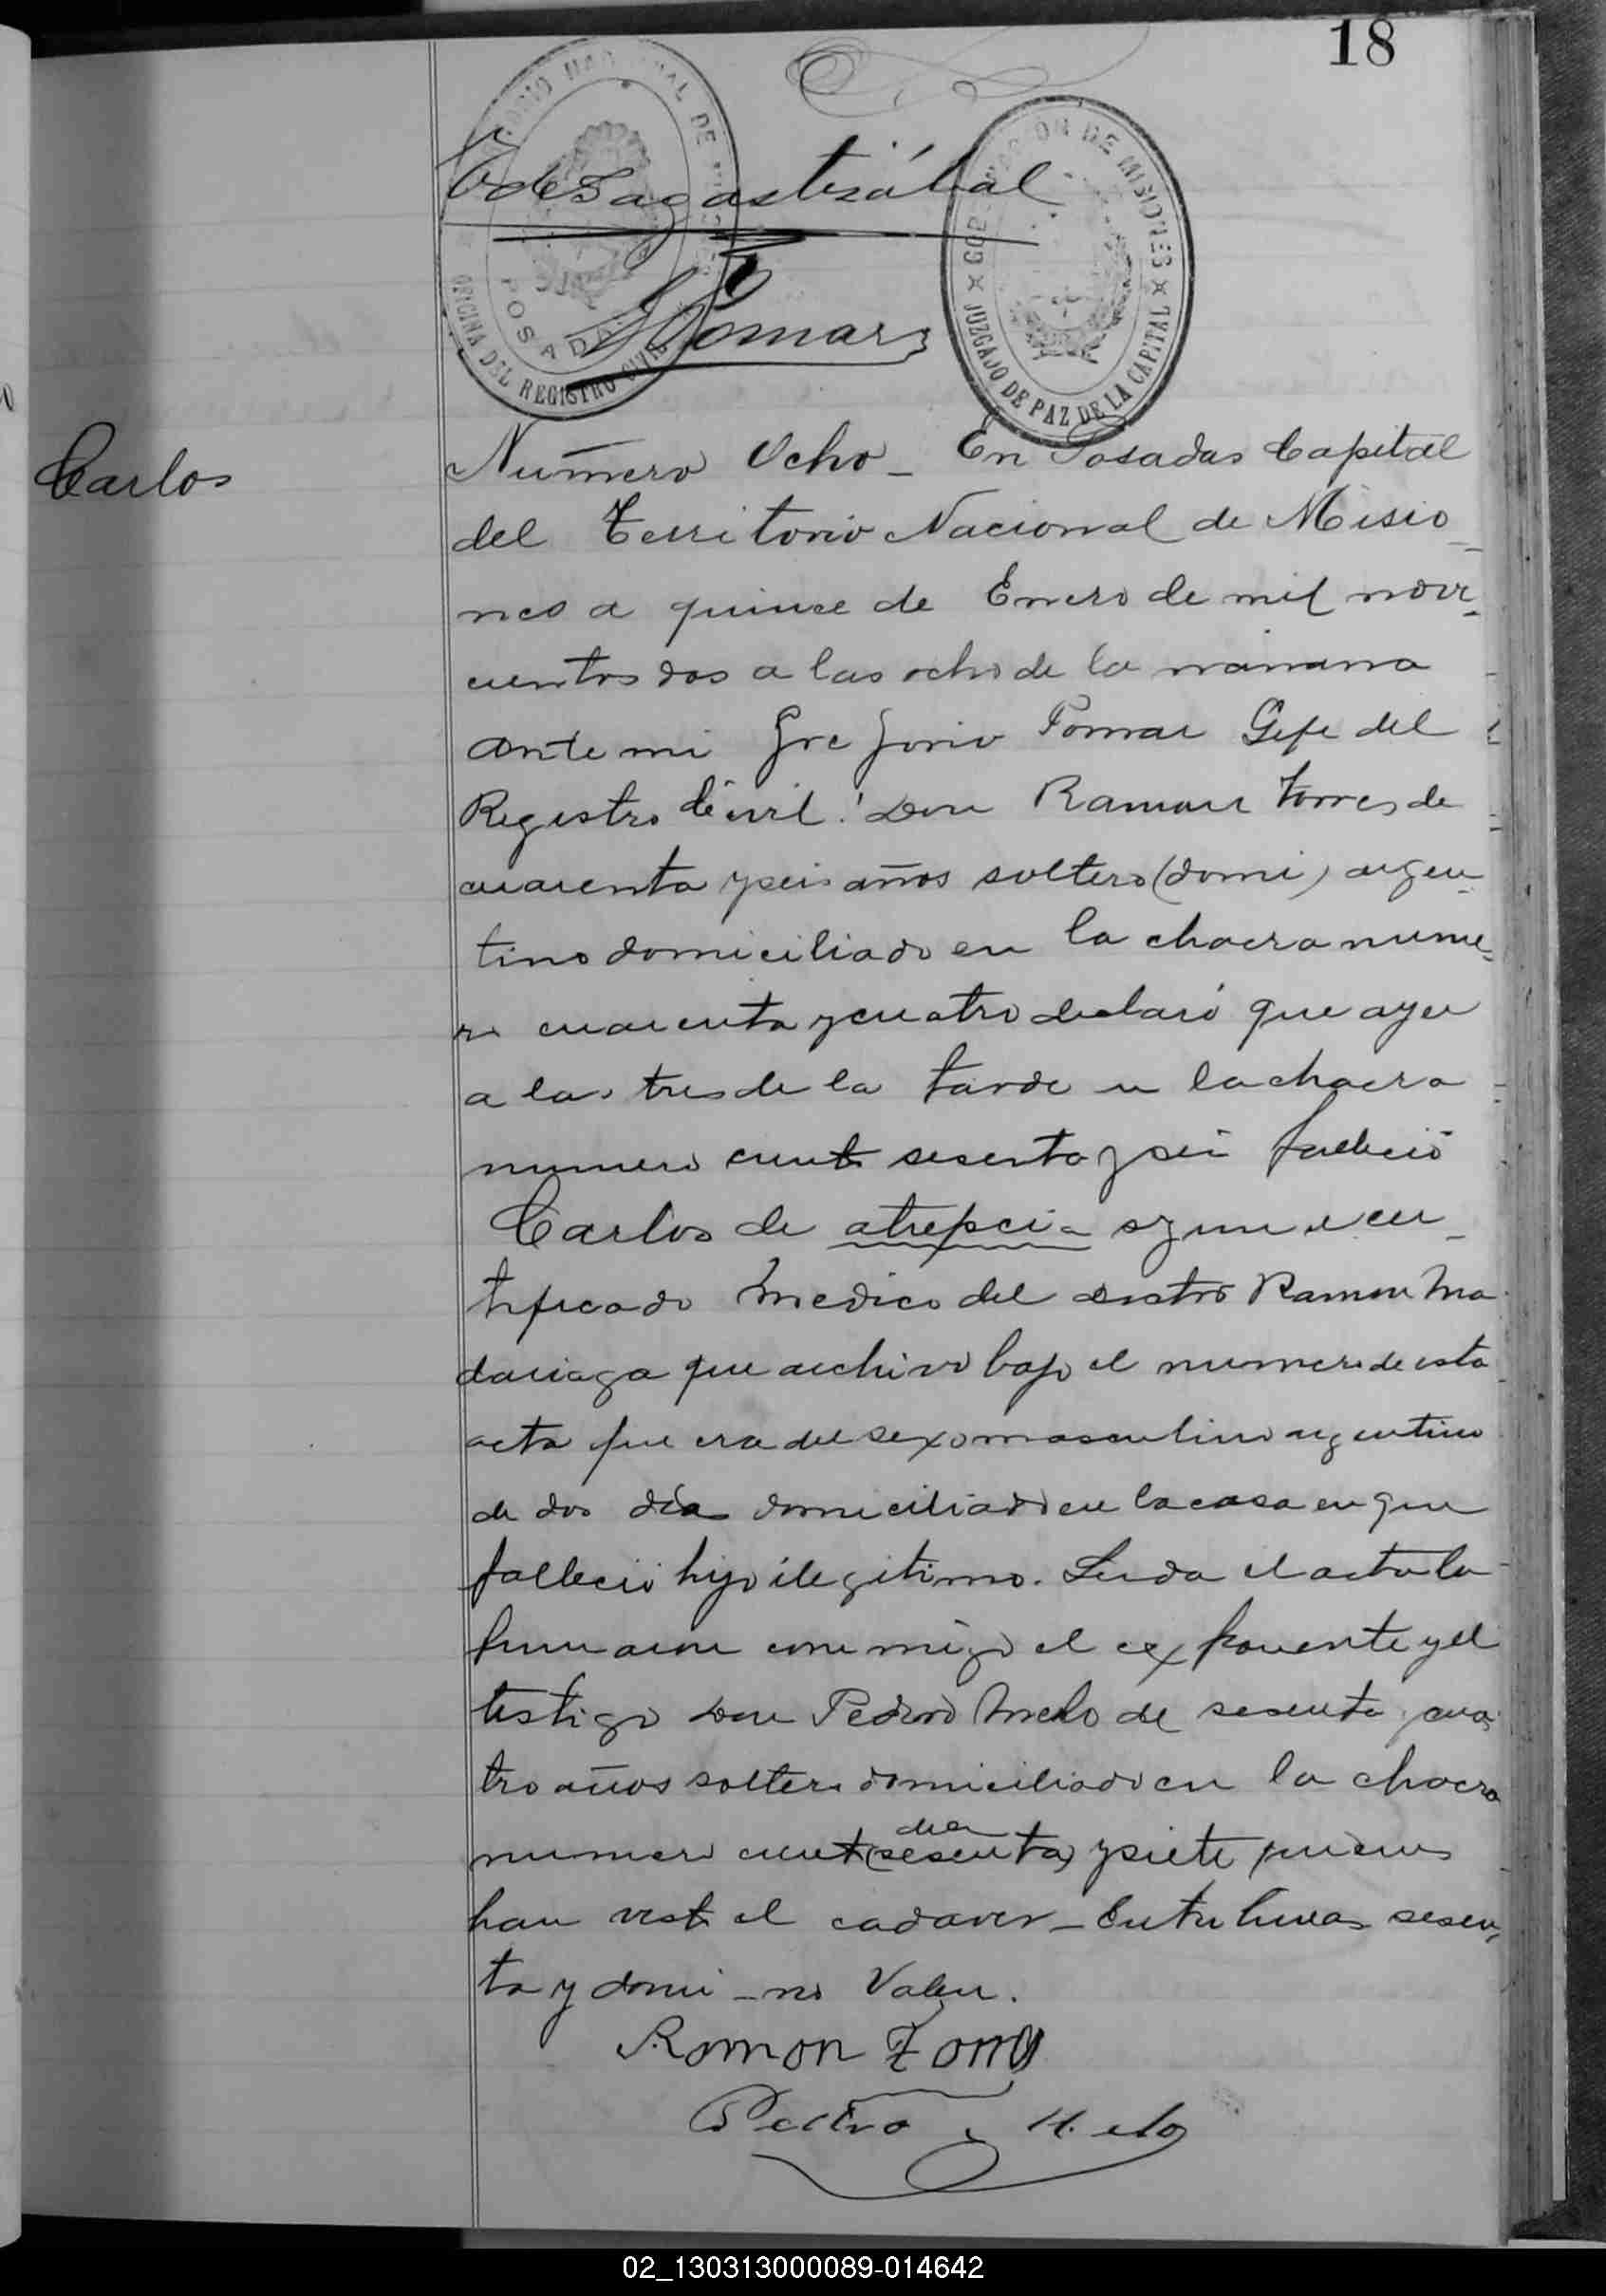 18
TERRITORIO NACIONAL DE MISIONES
POSADAS
OFICINA DEL REGISTRO CIVIL
GOBERNACION DE MISIONES
JUZGADO DE PAZ DE LA CAPITAL
C de Sagastizábal
GTomar
Carlos
Número Ocho _ En Posadas Capital
del Territorio Nacional de Misio_
nes a quinse de Enero de mil nove_
cientos dos a las ocho de la mañana
ante mi Gregorio Pomar Gefe del
Registro Civil: Don Ramon Torres de
cuarenta y seis años soltero (domi) argen_
tino domiciliado en la chacra nume_
ro cuarenta y cuatro declaró que ayer
a las tres de la tarde en la chacra
numero ciento sesenta y seis falleció
Carlos de atrepcia segun el cer_
tificado medico del doctor Ramon Ma
dariaga que archivo bajo el numero de esta
acta que era del sexo masculino argentino
de dos dias domiciliado en la casa en que
falleció hijo ilegitimo. Leida el acta la
firmaron conmigo el exponente y el
testigo Don Pedro Melo de sesenta y cua
tro años soltero domiciliado en la chacra
numero ciento (sesenta) y siete quienes
han visto el cadaver _ Entre lineas sesen_
ta y domi _ no Valen.
Ramon Torres
Pedro Melo
02_130313000089-014642